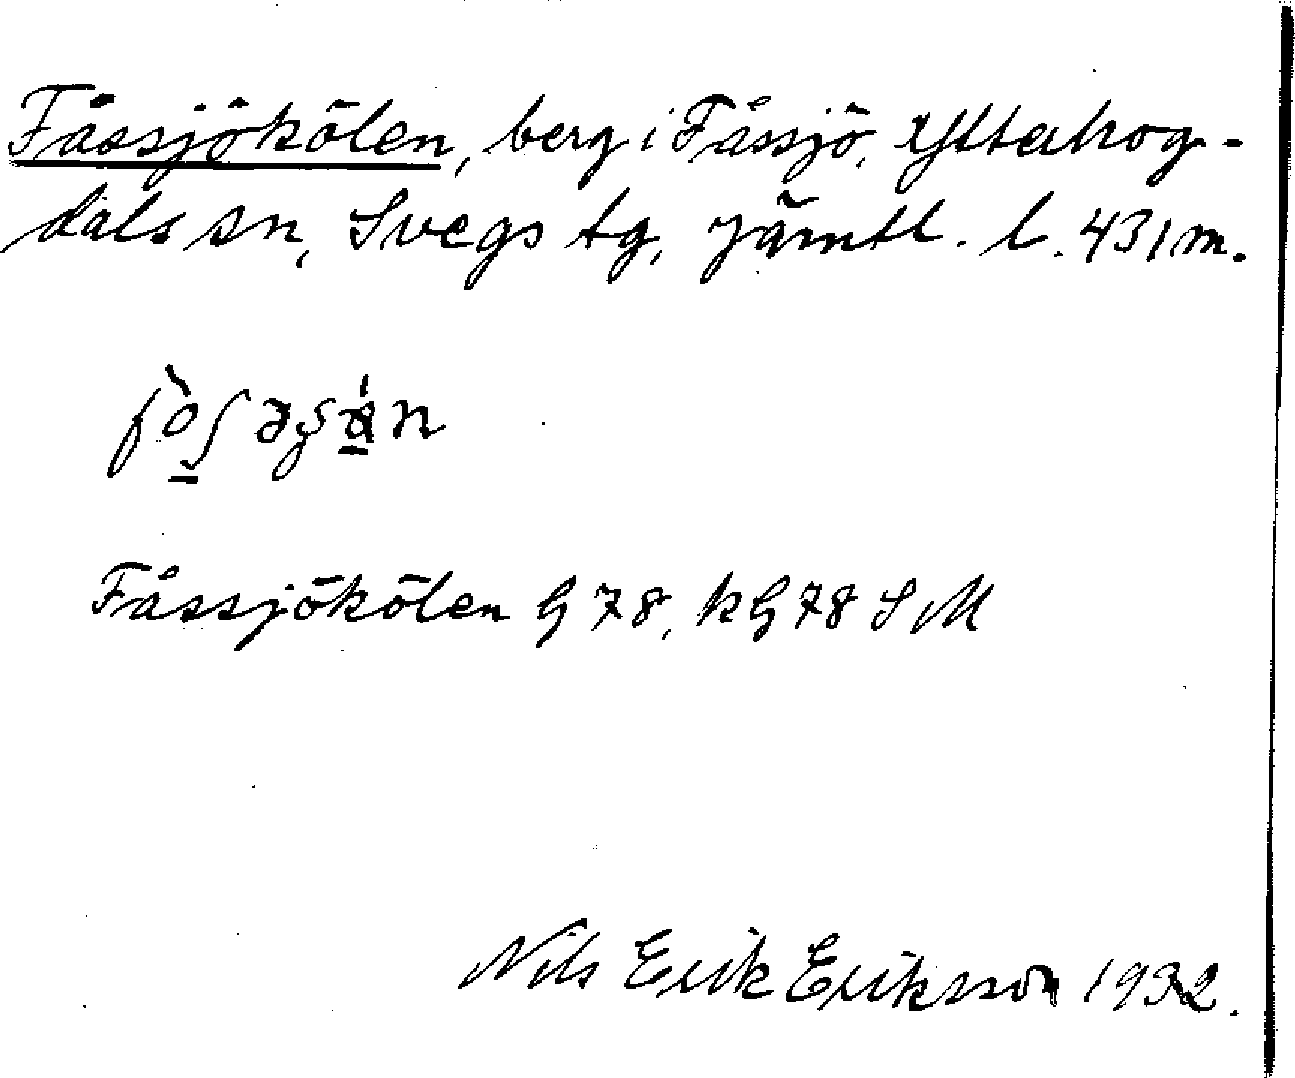 Fåssjökölen, berg i Fåssjö, Ytterhog-
dals sn, Svegs tg, Jämtl. l. 431 m.
Fåssjökölen G 78, k G 78 S M
Nils Erik Eriksson 1932.